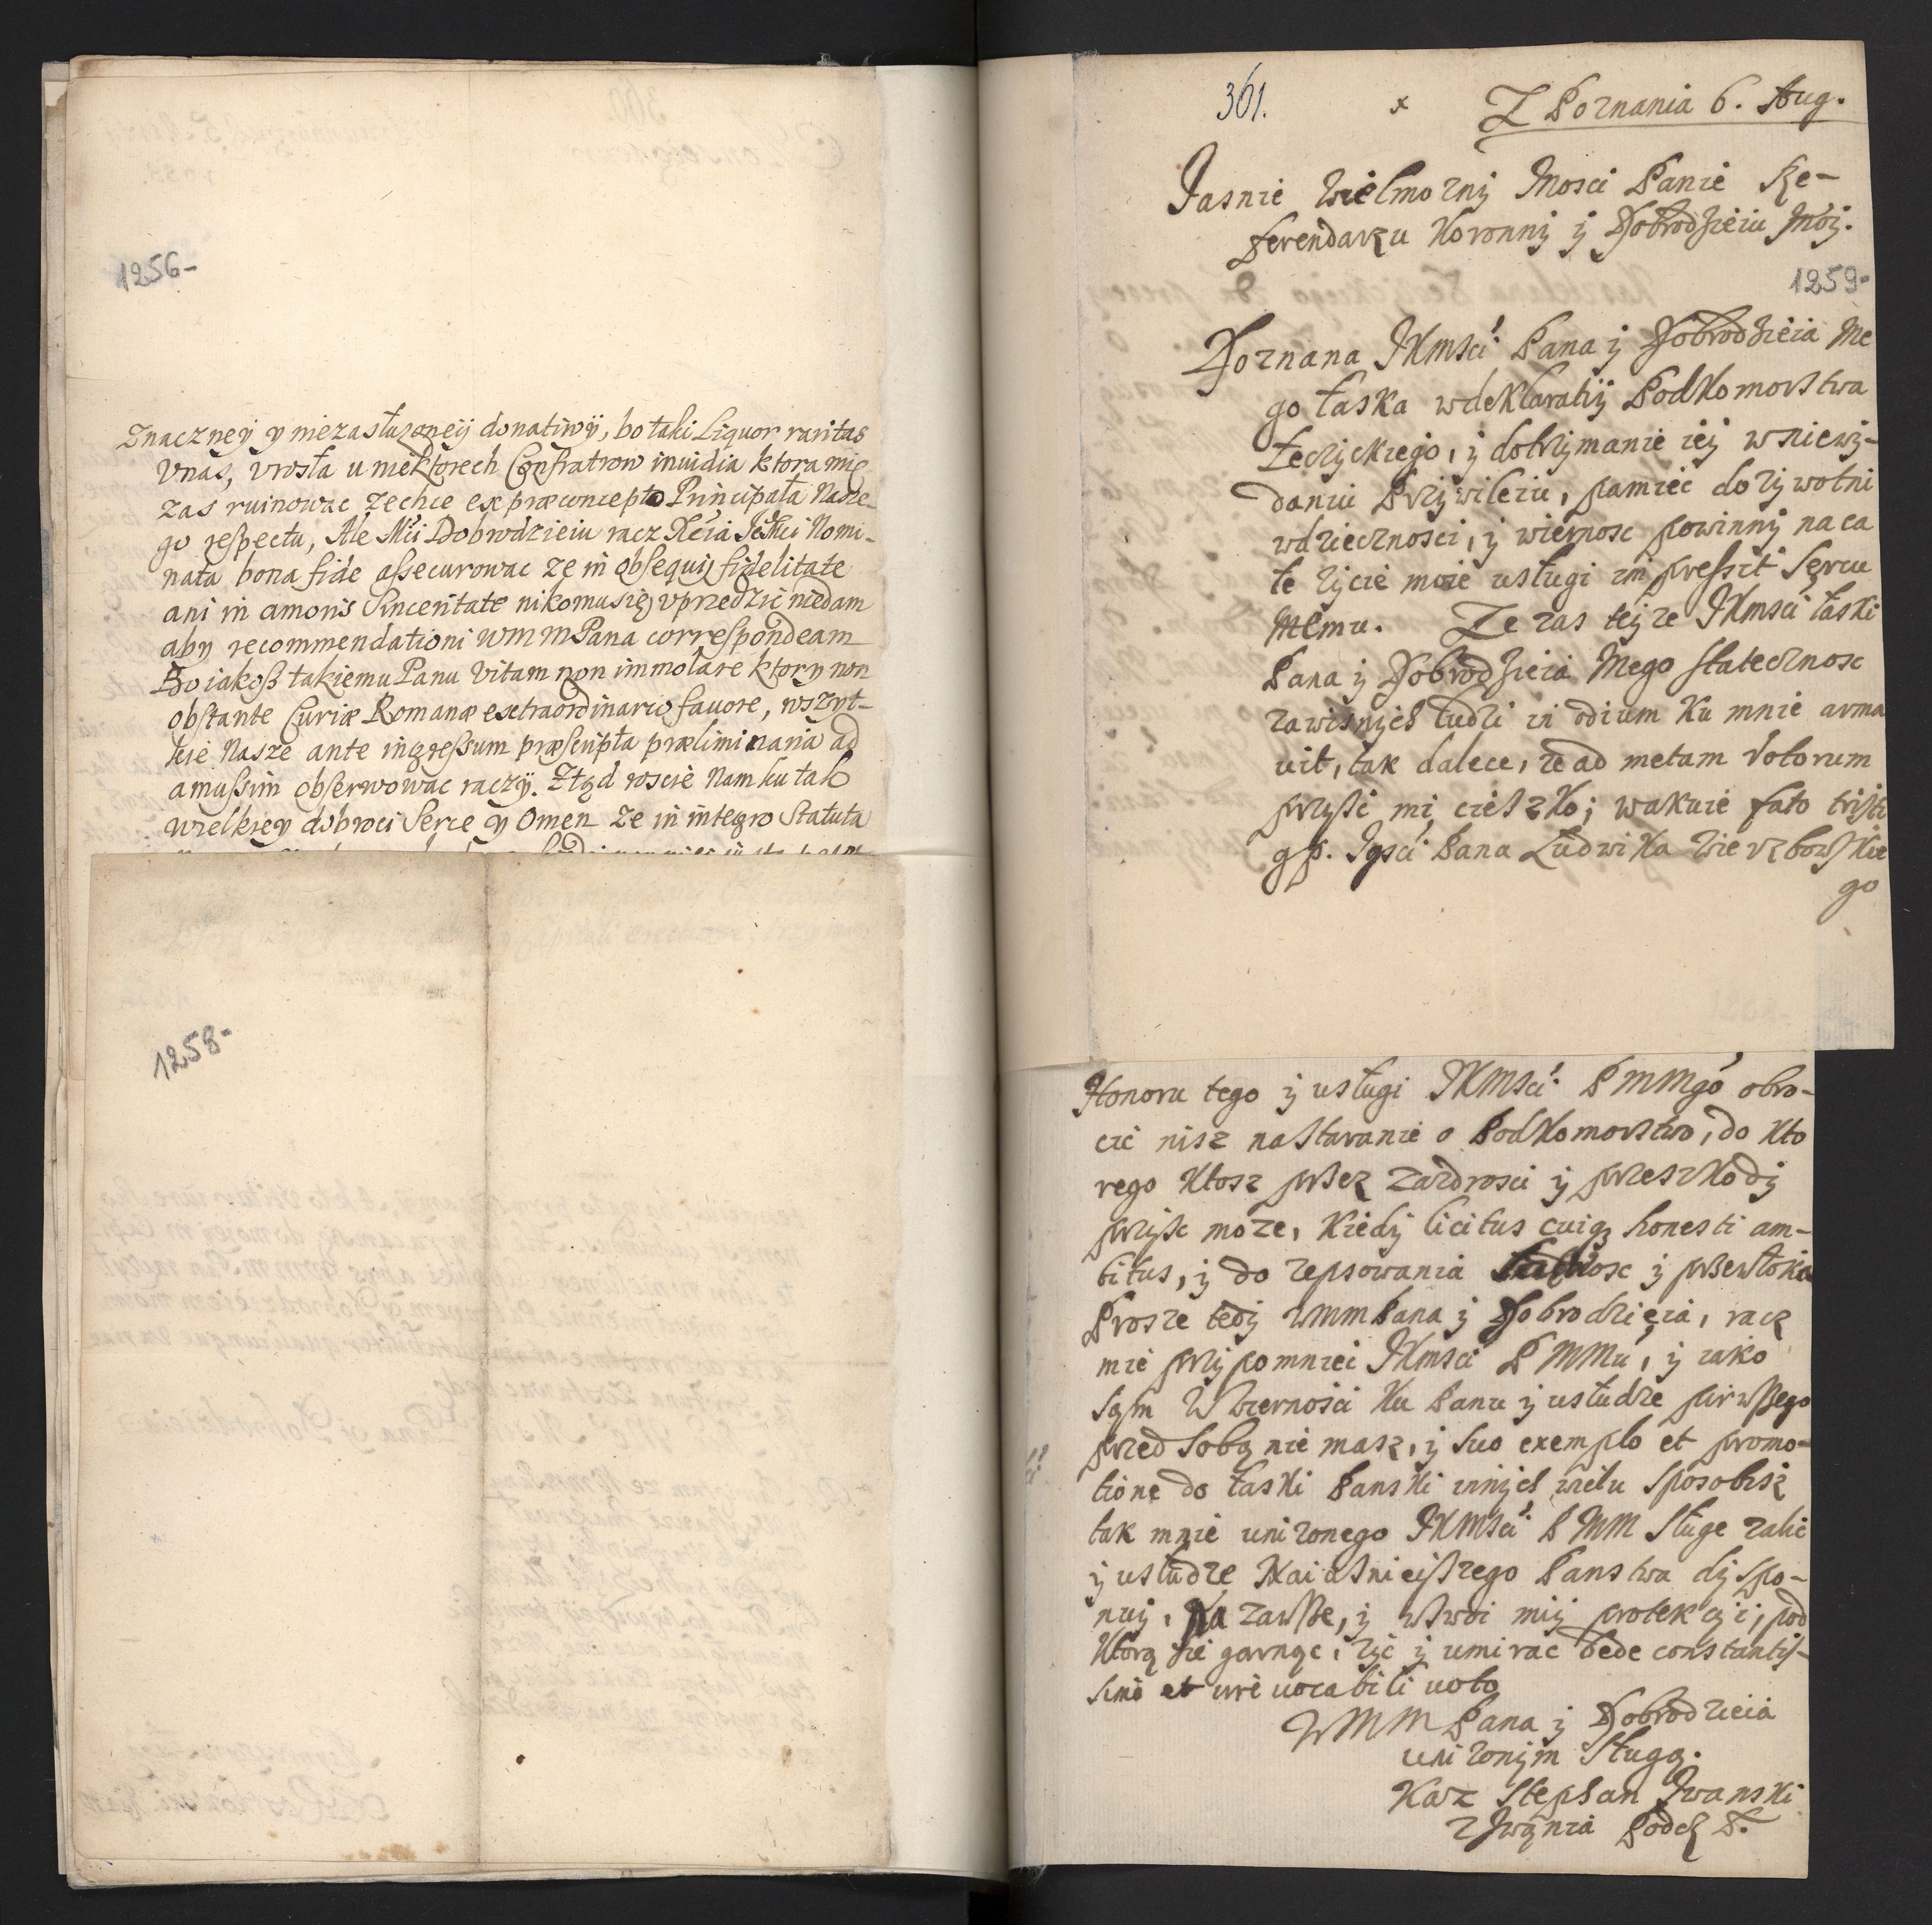 1256-
Znaczney y niezasłużoneij donatiwÿ, bo taki Liquor raritas
Vnas, vrosła u niektorech Confratrow inuidia ktora mię
zas ruinowac zechce ex præconcepto Principała Nasze-
go respectu, Ale Mći Dobrodzieiu racz Xćia Nomi-
nata bona fide assecurowac ze in obsequij fidelitate
ani in amoris Sinceritate nikomu się vprzedzic niedam
aby recommendationi WMMPana correspondeam
Bo iakosz takiemu Panu Vitam non immolare ktory non
obstante Curiæ Romanæ extraordinario fauore, wszyt-
kie Nasze ante ingressum præscripta præliminaria ad
amussim obserwowac raczÿ. Ztąd roscie Nam ku tak
wielkiey dobroci Serce y Omen ze in integro Statuta
1258-
361. x Z Poznania 6. Aug.
Jasnie Wielmozny Mosci Panie Re-
ferendarzu Koronnij ij Dobrodzieiu Moij.
1259-
Doznana JKMsci Pana ij Dobrodzieia Me
go łaska w deklaratij PodKomorstwa
Łeczyckiego, ij dotrzijmanie ieij w niewij-
daniu Przijwileiu, pamiec dozijwotni
wdziecznosci, ij wiernosc powinnij na ca
łe zijcie moie usługi impressit Sercu
Memu. Ze zas teijze JKmsci łaski
Pana ij Dobrodzieia Mego statecznosc
zawisnijch ludzi in odium Ku mnie arma
uit, tak dalece, ze ad metam Votorum
przijsc mi cieszKo; wakuie fato tristi
go
Honoru tego ij usługi JKMsci PMMgo obro-
cic nisz na staranie o PodKomorstwo, do Kto
rego Ktosz przez zazdrosci ij przeszKodij
przijsc moze, Kiedij licitus cuiq honesti am-
bitus, ij do zepsowania ij przewłoka
Prosze tedij WMMPana ij Dobrodzieia, racz
mie przijpomniec JKmsci PMMu, ij iako
sam W wiernosci Ku Panu ij usłudze pirwszego
przed sobą nie masz, ij suo exemplo et promo-
tione do łaski Panski innijch wielu sposobisz
tak mnie unizonego JKMsci PMM Sługe zalic
ij usłudze Naiasnieiszego Panstwa dijspo-
nuij, Na zawsze, ij w swoi mij protekcij, pod
Ktorą sie garnąc, zijc ij umirac bede constantis-
simo et irreuocabili uoto
WMMPana ij Dobrodzieia
unizonijm Sługą.
Kaz Stephan Iwanski